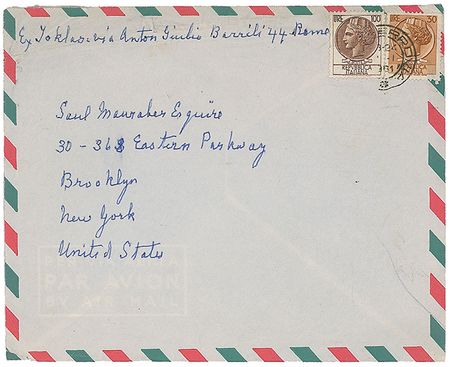 Ex Toklas via Anton Giulio Barrili 44 Rome
LIRE 100
REPUBBLICA
ITALIANA
LIRE 50
REPUBBLICA
ITALIANA
Saul Mauraber Esquire
30 - 36 Eastern Parkway
Brooklyn
New York
United States
PAR AVION
BY AIR MAIL